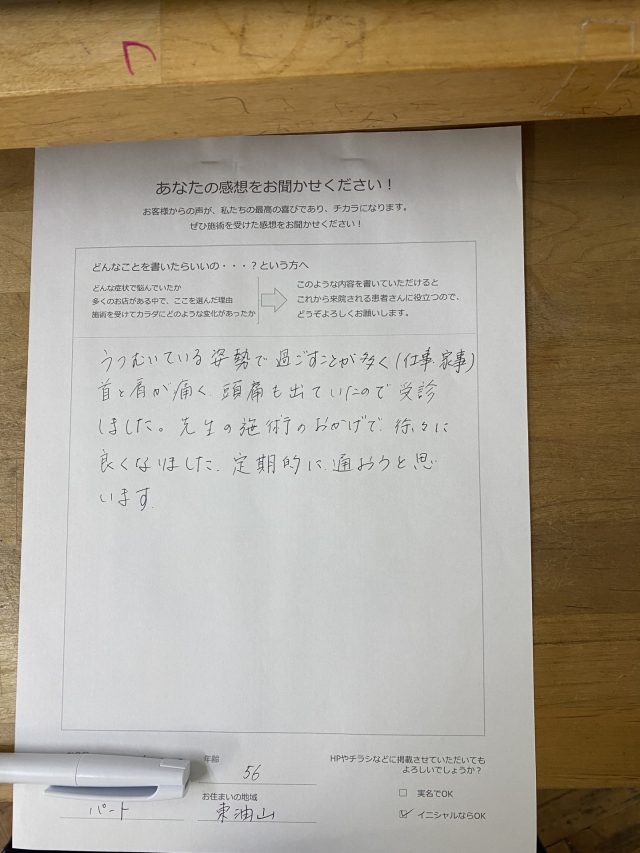 あなたの感想をお聞かせください！
お客様からの声が、私たちの最高の喜びであり、チカラになります。
ぜひ施術を受けた感想をお聞かせください！
どんなことを書いたらいいの・・・？という方へ
どんな症状で悩んでいたか
多くのお店がある中で、ここを選んだ理由
施術を受けてカラダにどのような変化があったか
このような内容を書いていただけると
これから来院される患者さんに役立つので、
どうぞよろしくお願いします。
うつむいている姿勢で過ごすことが多く(仕事.家事)
首と肩が痛く、頭痛も出ていたので受診
しました。先生の施術のおかげで、徐々に
良くなりました、定期的に、通おうと思
います
年齢
56
お住まいの地域
パート
東油山
HPやチラシなどに掲載させていただいても
よろしいでしょうか？
実名でOK
イニシャルならOK